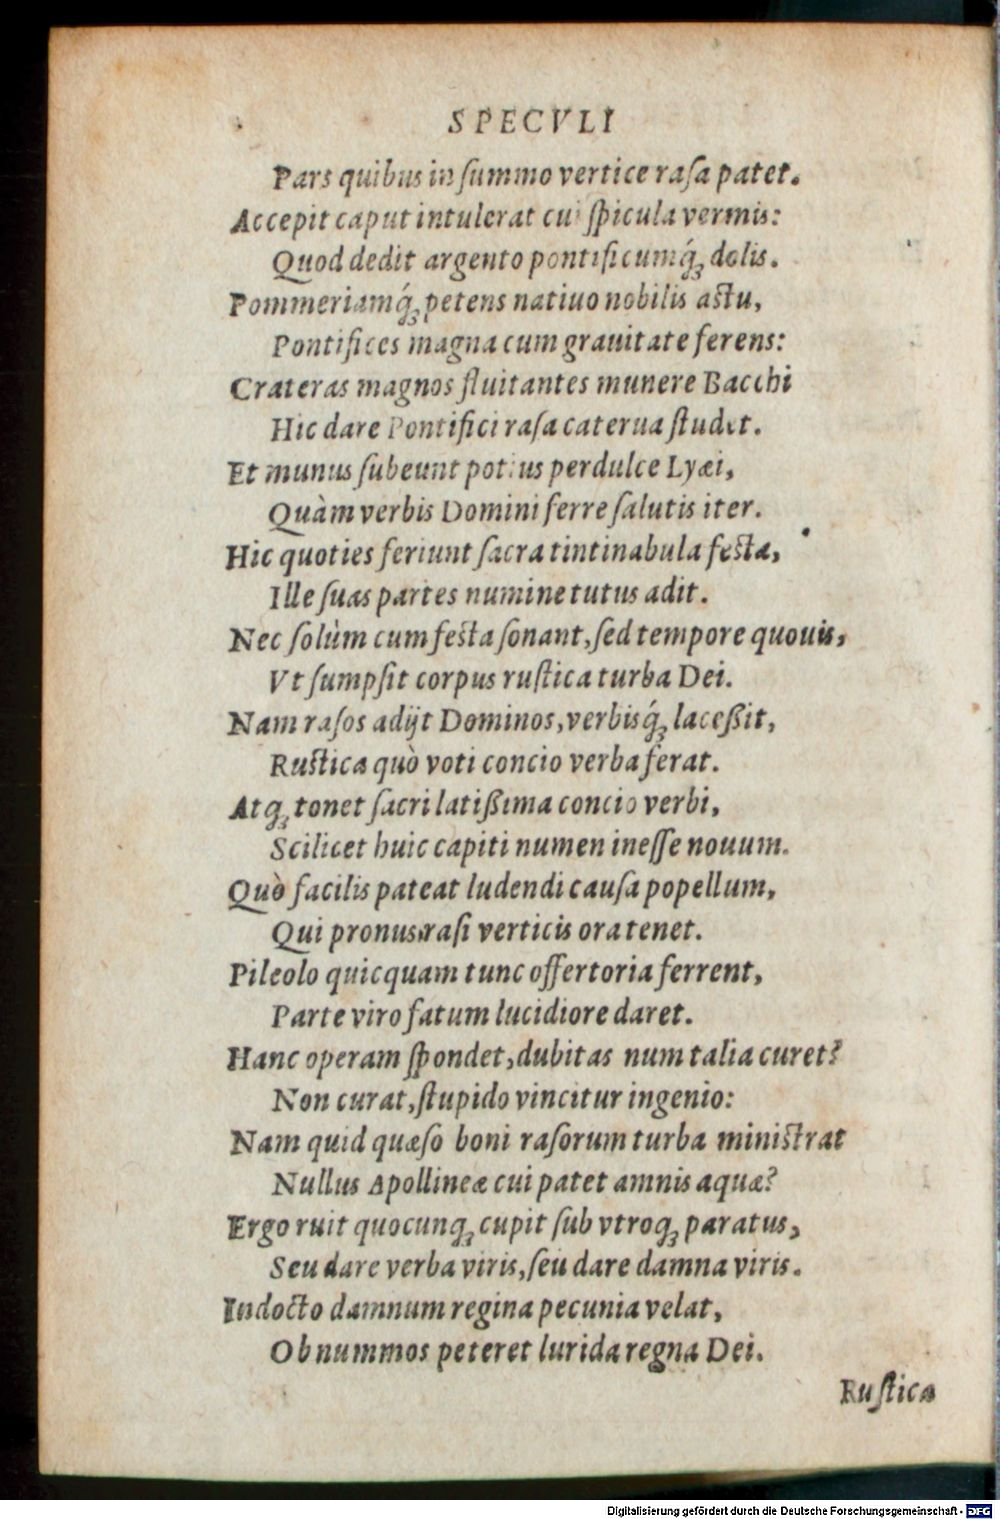 SPECVLI
Pars quibus in ſummo vertice raſa patet.
Accepit caput intulerat cui ſpicula vermis:
Quod dedit argento pontificumq́ꝫ dolis.
Pommeriamq́ꝫ petens natiuo nobilis aſtu,
Pontifices magna cum grauitate ferens:
Crateras magnos fluitantes munere Bacchi
Hic dare Pontifici raſa caterua ſtudet.
Et munus ſubeunt potius perdulce Lyæi,
Quàm verbis Domini ferre ſalutis iter.
Hic quoties feriunt ſacra tintinabula feſta,
Ille ſuas partes numine tutus adit.
Nec ſolùm cum feſta ſonant, ſed tempore quouis,
Vt ſumpſit corpus ruſtica turba Dei.
Nam raſos adijt Dominos, verbisq́ꝫ laceßit,
Ruſtica quò voti concio verba ferat.
Atqꝫ tonet ſacri latißima concio verbi,
Scilicet huic capiti numen ineſſe nouum.
Quò facilis pateat ludendi cauſa popellum,
Qui pronus raſi verticis ora tenet.
Pileolo quicquam tunc offertoria ferrent,
Parte viro fatum lucidiore daret.
Hanc operam ſpondet, dubitas num talia curet?
Non curat, ſtupido vincitur ingenio:
Nam quid quæſo boni raſorum turba miniſtrat
Nullus Apollineæ cui patet amnis aquæ?
Ergo ruit quocunqꝫ cupit ſub vtroqꝫ paratus,
Seu dare verba viris, ſeu dare damna viris.
Indocto damnum regina pecunia velat,
Ob nummos peteret lurida regna Dei.
Ruſtica
Digitalisierung gefördert durch die Deutsche Forschungsgemeinschaft - DFG